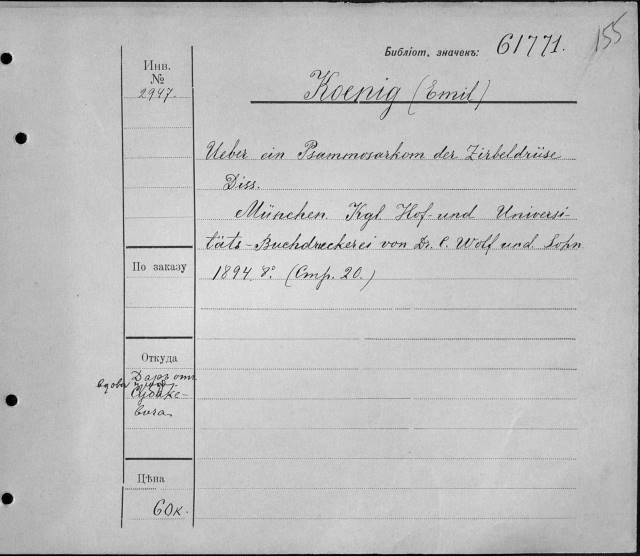 155
Библіот. значекъ: 61771.
Инв.
№
2947.
Koenig (Emil)
Ueber ein Psammosarkom der Zirbeldrüse
Diss.
München. Kgl. Hof- und Universi-
täts-Buchdruckerei von Dr. C. Wolf und Sohn
1894. 8º. (Стр. 20.)
По заказу
Откуда
Даръ отъ
вдовы
Цѣна
60к.